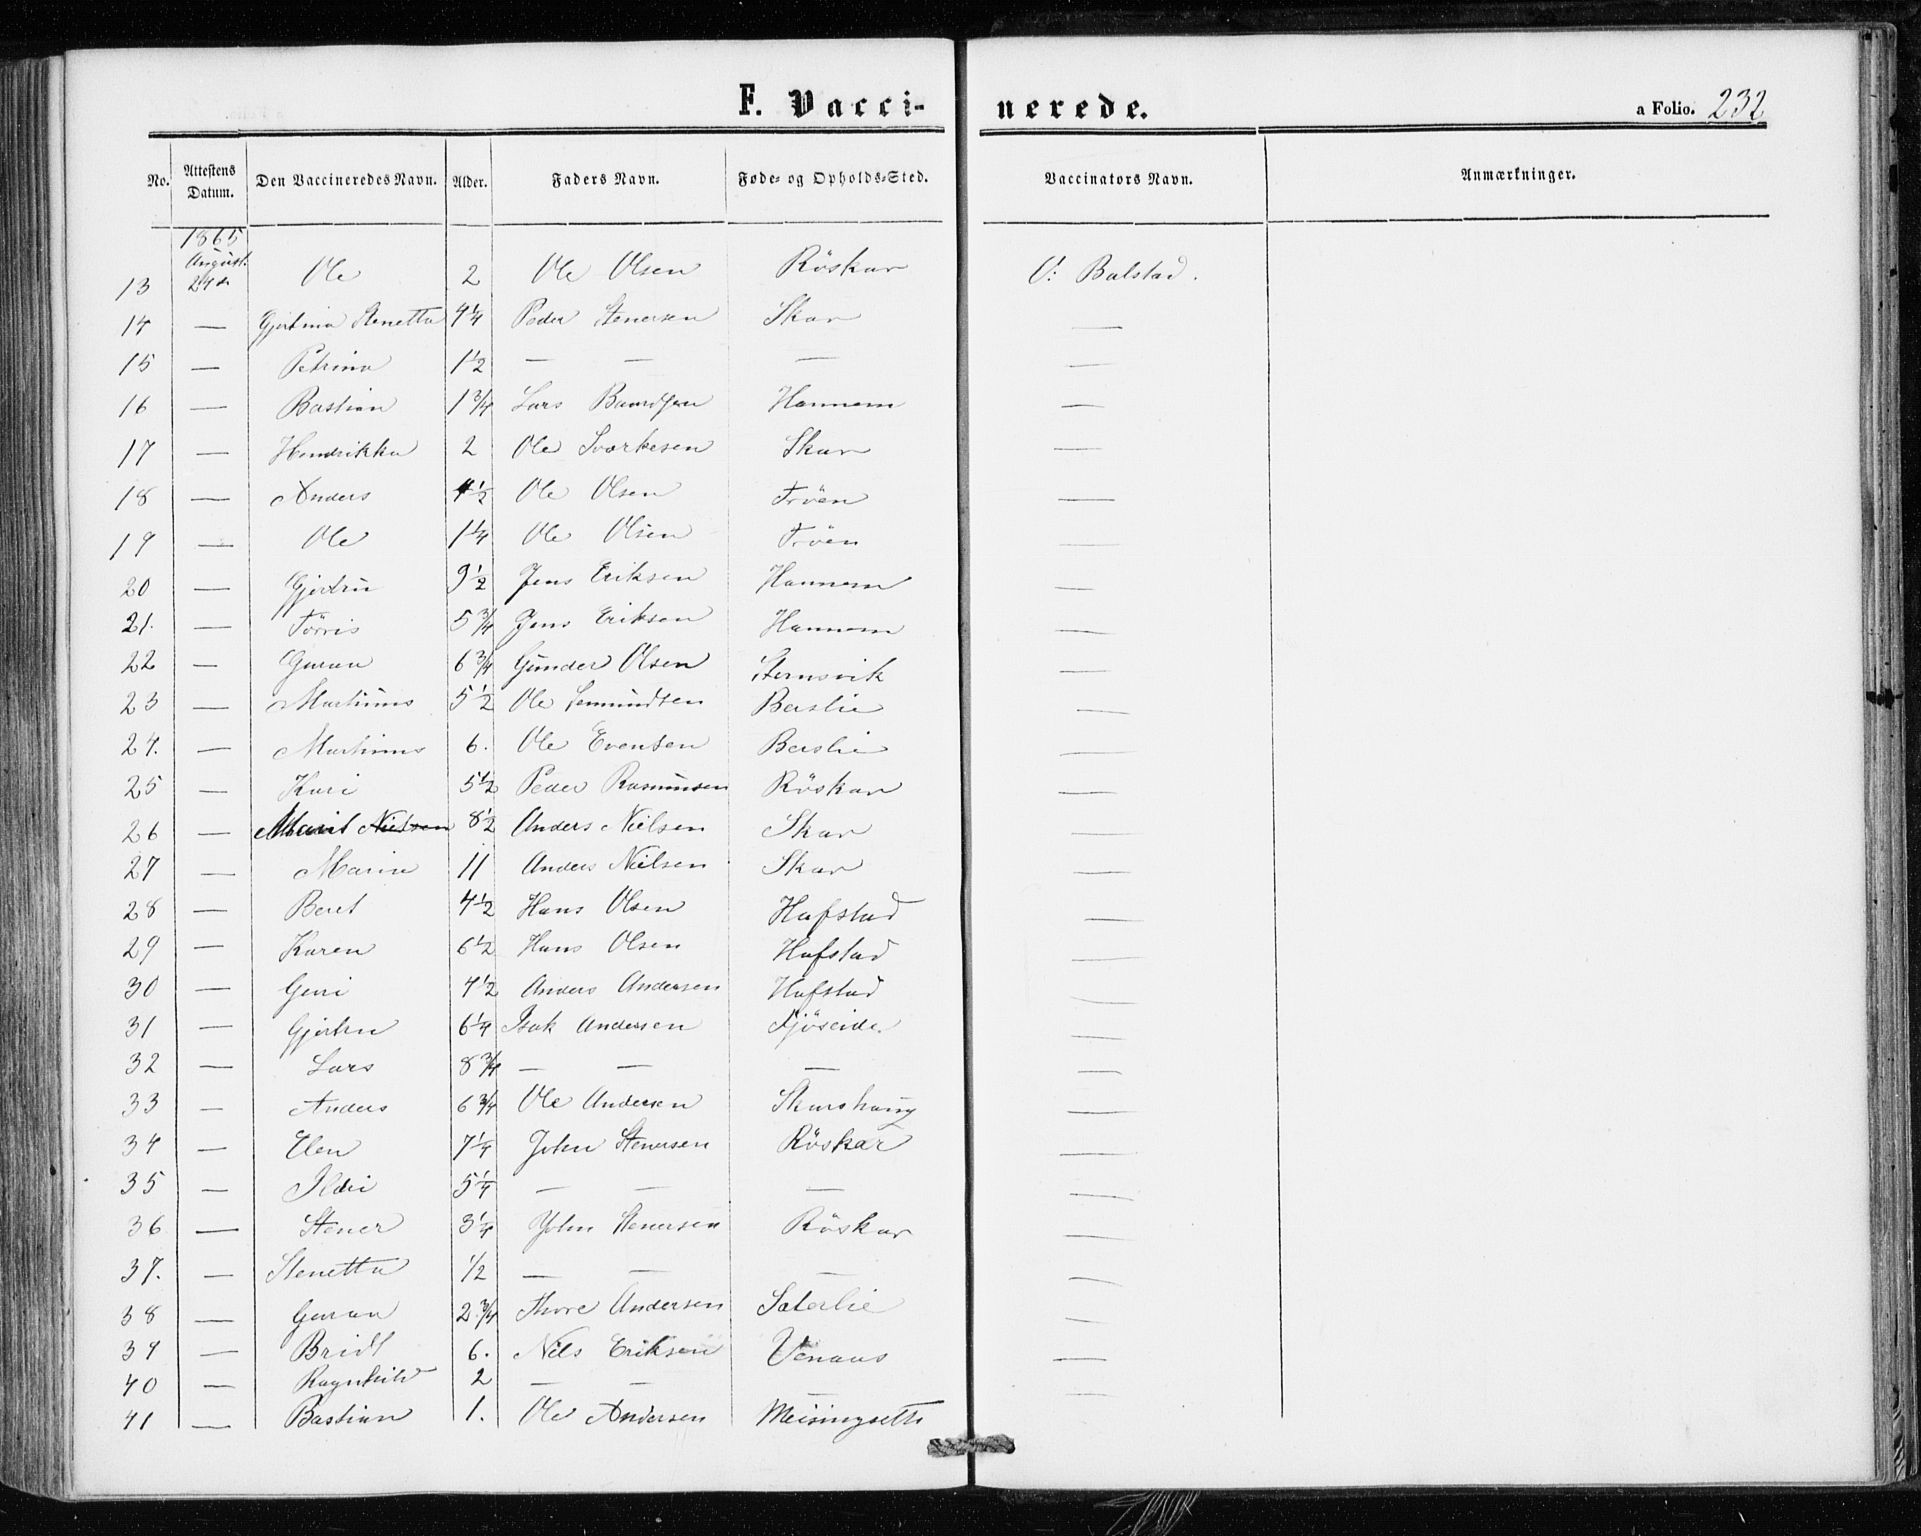 F. Vaccinerede. a Folio. 232
No. Attestens Datum. Den Vaccineredes Navn. Alder. Faders Navn. Føde- og Opholds-Sted. Vaccinators Navn. Anmærkninger.
1865
August.
13 24de Ole 2 Ole Olsen Röskar O: Balstad.
14 — Gjertina Stenetta 4¼ Peder Stenersen Skar —
15 — Petrina 1½ — — — —
16 — Bastian 1¾ Lars Hannem —
17 — Hendrikka 2 Ole Sverkesen Skar —
18 — Anders 4½ Ole Olsen Tröen —
19 — Ole 1¼ Ole Olsen Tröen —
20 — Gjertru 9½ Jens Eriksen Hannem —
21. — Törris 5¾ Jens Eriksen Hannem —
22 — Guran 6¾ Gunder Olsen Stensvik —
23 — Martinus 5½ Ole Semundsen Berslie —
24. — Martinus 6. Ole Evensen Berslie —
25 — Kari 5½ Peder Rasmussen Röskar —
26 — Marit Nielsen 8½ Anders Nielsen Skar —
27 — Marie 11 Anders Nielsen Skar —
28 — Beret 4½ Hans Olsen Hafstad —
29 — Karen 6½ Hans Olsen Hafstad —
30 — Guri 4½ Anders Andersen Hafstad —
31 — Gjertru 6¼ Isak Andersen Fjöseide. —
32 — Lars 8¾ — — — —
33 — Anders 6¾ Ole Andersen Skarshaug —
34 — Elen 7¼ John Stenersen Röskar —
35 — Ildri 5¼ — — — —
36 — Stener 3¼ John Stenersen Röskar —
37. — Stenetta ½ — — — —
38 — Guran 2¾ Thore Andersen Säterlie —
39 — Bridt 6. Nils Eriksen Venaus —
40 — Ragnhild 2 — — — —
41 — Bastian 1. Ole Andersen Meisingseth